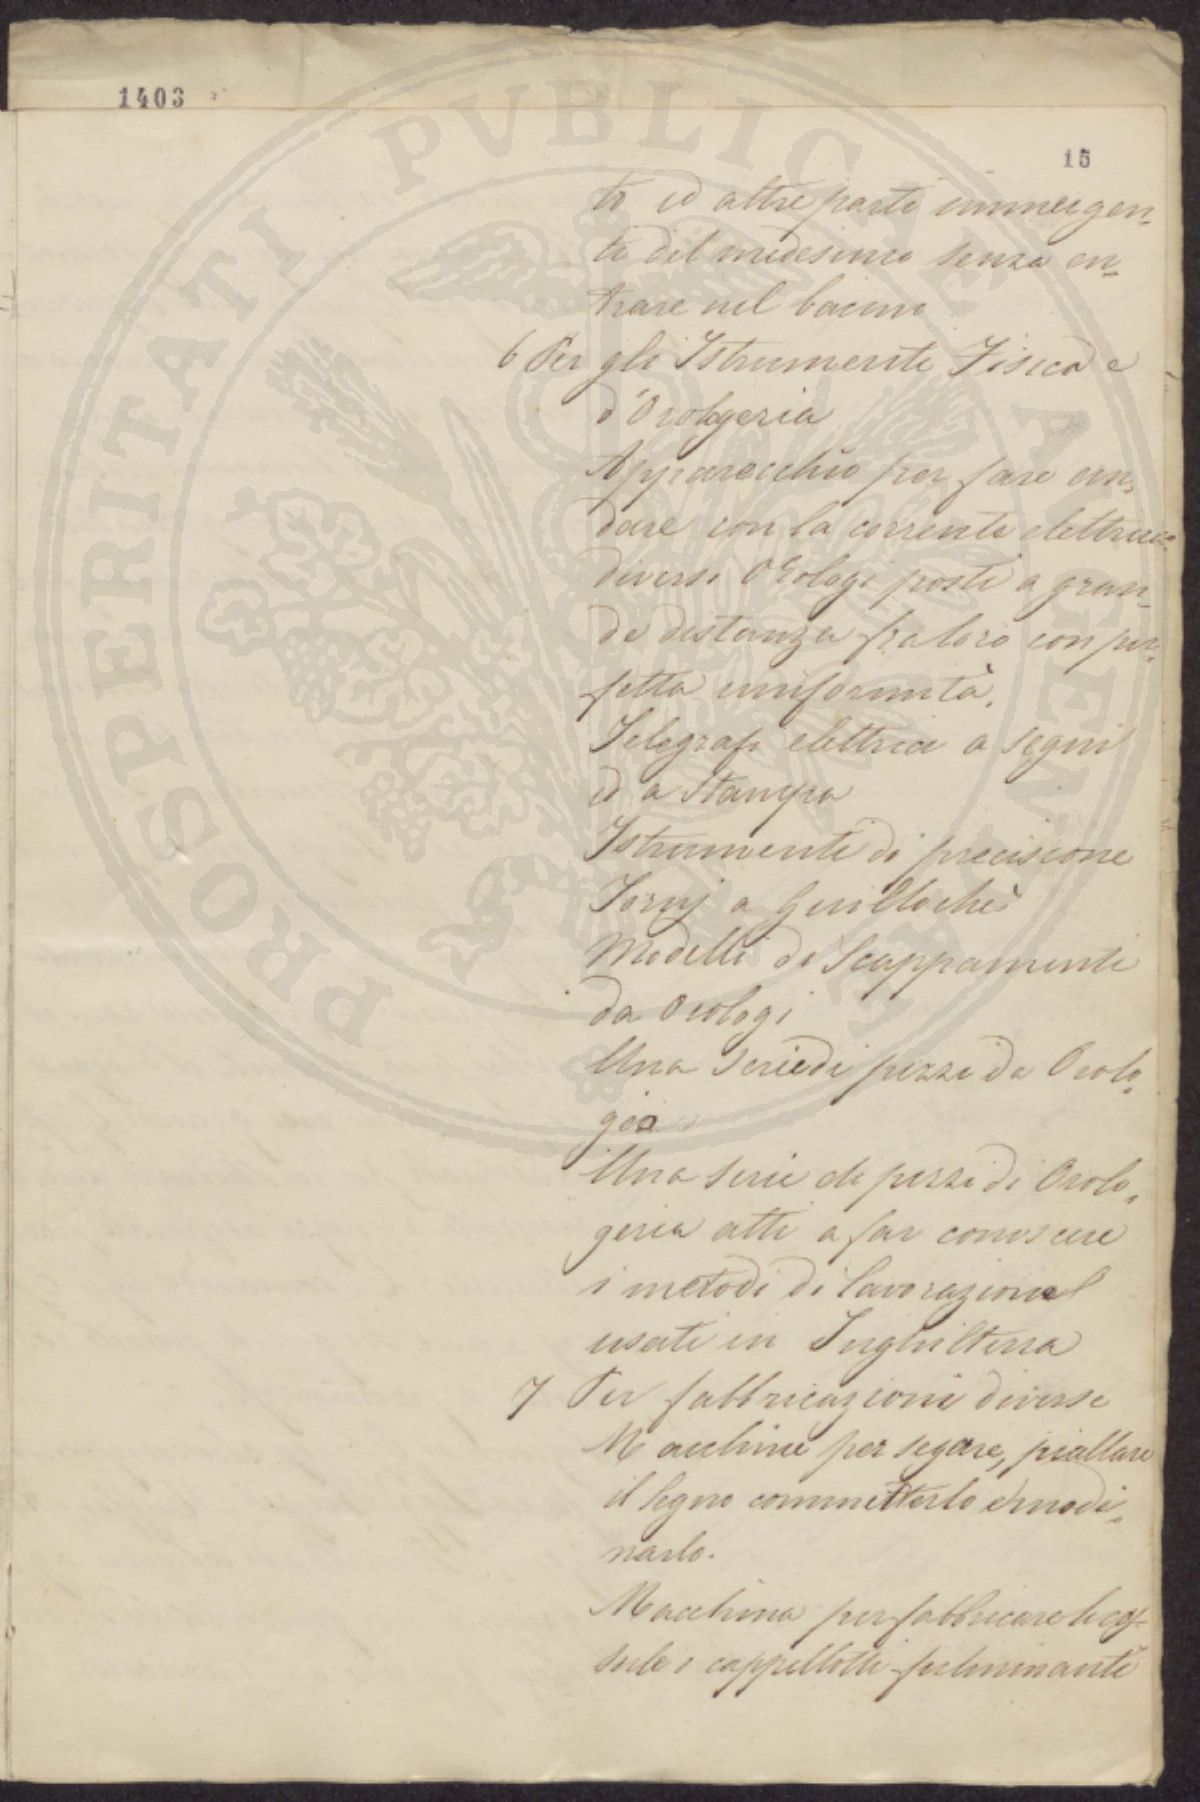 1403
15
to ed altre parti immergen-
ti del medesimo senza en-
trare nel bacino
6 Per gli Istrumenti Fisica e
d'Orologeria
Apparecchio per fare an-
dare con la corrente elettrica
diversi Orologi posti a gran-
de distanza fra loro con per-
fetta uniformità.
Telegrafi elettrici a segni
ed a Stampa
Istrumenti di precisione
Tornj a Guillochè
Modelli di Scappamenti
da Orologi
Una Serie di pezzi da Orolo-
gio
Una serie di pezzi di Orolo-
geria atti a far conoscere
i metodi di lavorazione
usati in Inghilterra
7 Per fabbricazioni diverse
Macchine per segare, piallare
il legno commetterlo e modi-
narlo.
Macchina per fabbricare le cap-
sule e cappellotti fulminanti
PROSPERITATI PVBLICAE AVGENDAE